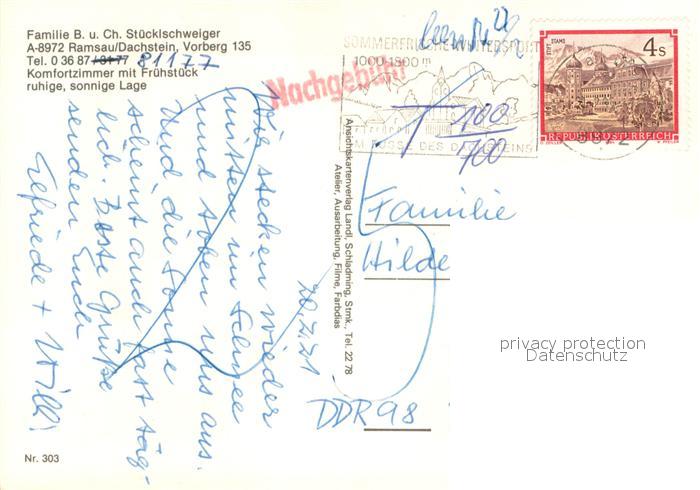 Familie B. u. Ch. Stücklschweiger
A-8972 Ramsau/Dachstein, Vorberg 135
Tel. 0 36 87 / 81177
Komfortzimmer mit Frühstück
ruhige, sonnige Lage
Wir stecken wieder
mitten im Schnee
und toben uns aus.
Und die Sonne
scheint auch fast täg-
lich. Beste Grüße
senden Euch
Elfriede + Willi
Nr. 303
Ansichtskartenverlag Landl, Schladming, Stmk., Tel. 2278
Atelier, Ausarbeitung, Filme, Farbdias
SOMMERFRISCHE WINTERSPORT
1000-1800 m
AM FUSSE DES DACHSTEINS
Nachgebühr
T 100/700
STIFT STAMS
4 S
REPUBLIK ÖSTERREICH
Familie
Hilde
DDR 98
privacy protection
Datenschutz